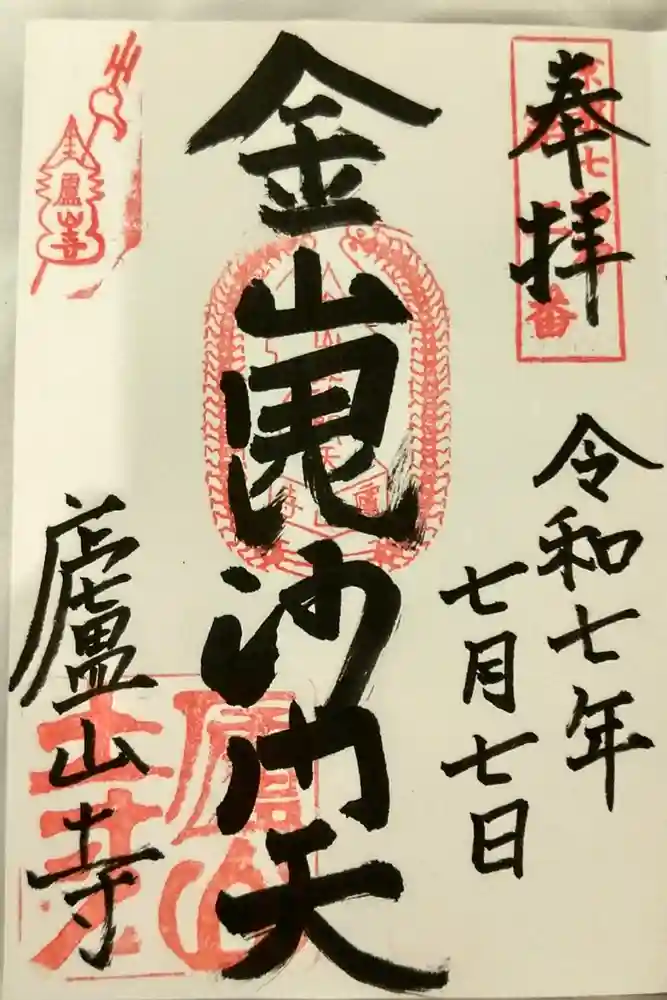 奉拝
令和七年
七月七日
金山毘沙門天
廬山寺
廬山寺